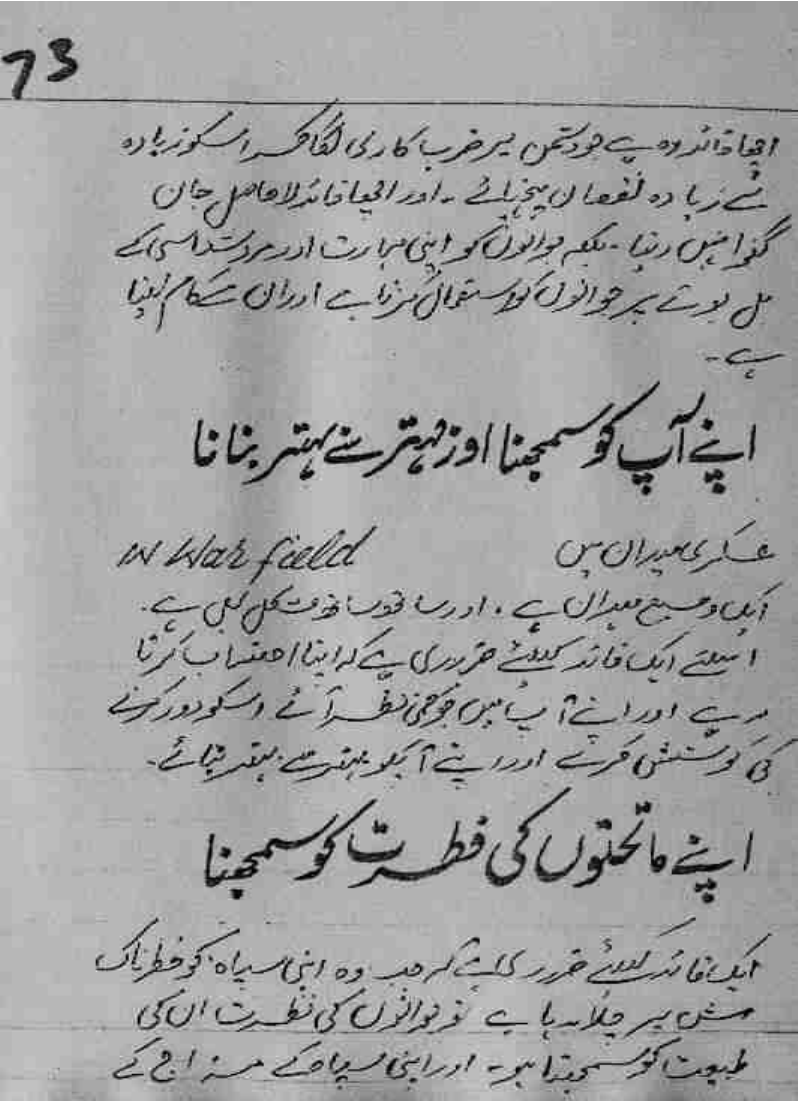 73
اچھا قائد وہ ہے جو دشمن پر ضرب کاری لگا کر اسکو زیادہ
سے زیادہ نقصان پہنچائے۔ اور اچھا قائد لا حاصل جان
گنوا نہیں دیتا۔ بلکہ جوانوں کو اپنی مہارت اور مردشناسی کے
بل بوتے پر جوانوں کو استعمال کرتا ہے اور ان سے کام لیتا
ہے۔
اپنے آپ کو سمجھنا اور بہتر سے بہتر بنانا
عسکری میدان میں In War field
ایک وسیع میدان ہے۔ اور ساتھ ساتھ مشکل بھی ہے۔
اسلئے ایک قائد کیلئے ضروری ہے کہ اپنا احتساب کرتا
رہے اور اپنے آپ میں جو کمی نظر آئے اسکو دور کرنے
کی کوشش کرے اور اپنے آپکو بہتر سے بہتر بنائے۔
اپنے ماتحتوں کی فطرت کو سمجھنا
ایک قائد کیلئے ضروری ہے کہ جب وہ اپنی سپاہ کو خطرناک
مشن پر چلا رہا ہے تو جوانوں کی فطرت ان کی
طبیعت کو سمجھتا ہو۔ اور اپنی سپاہ کے مزاج کے